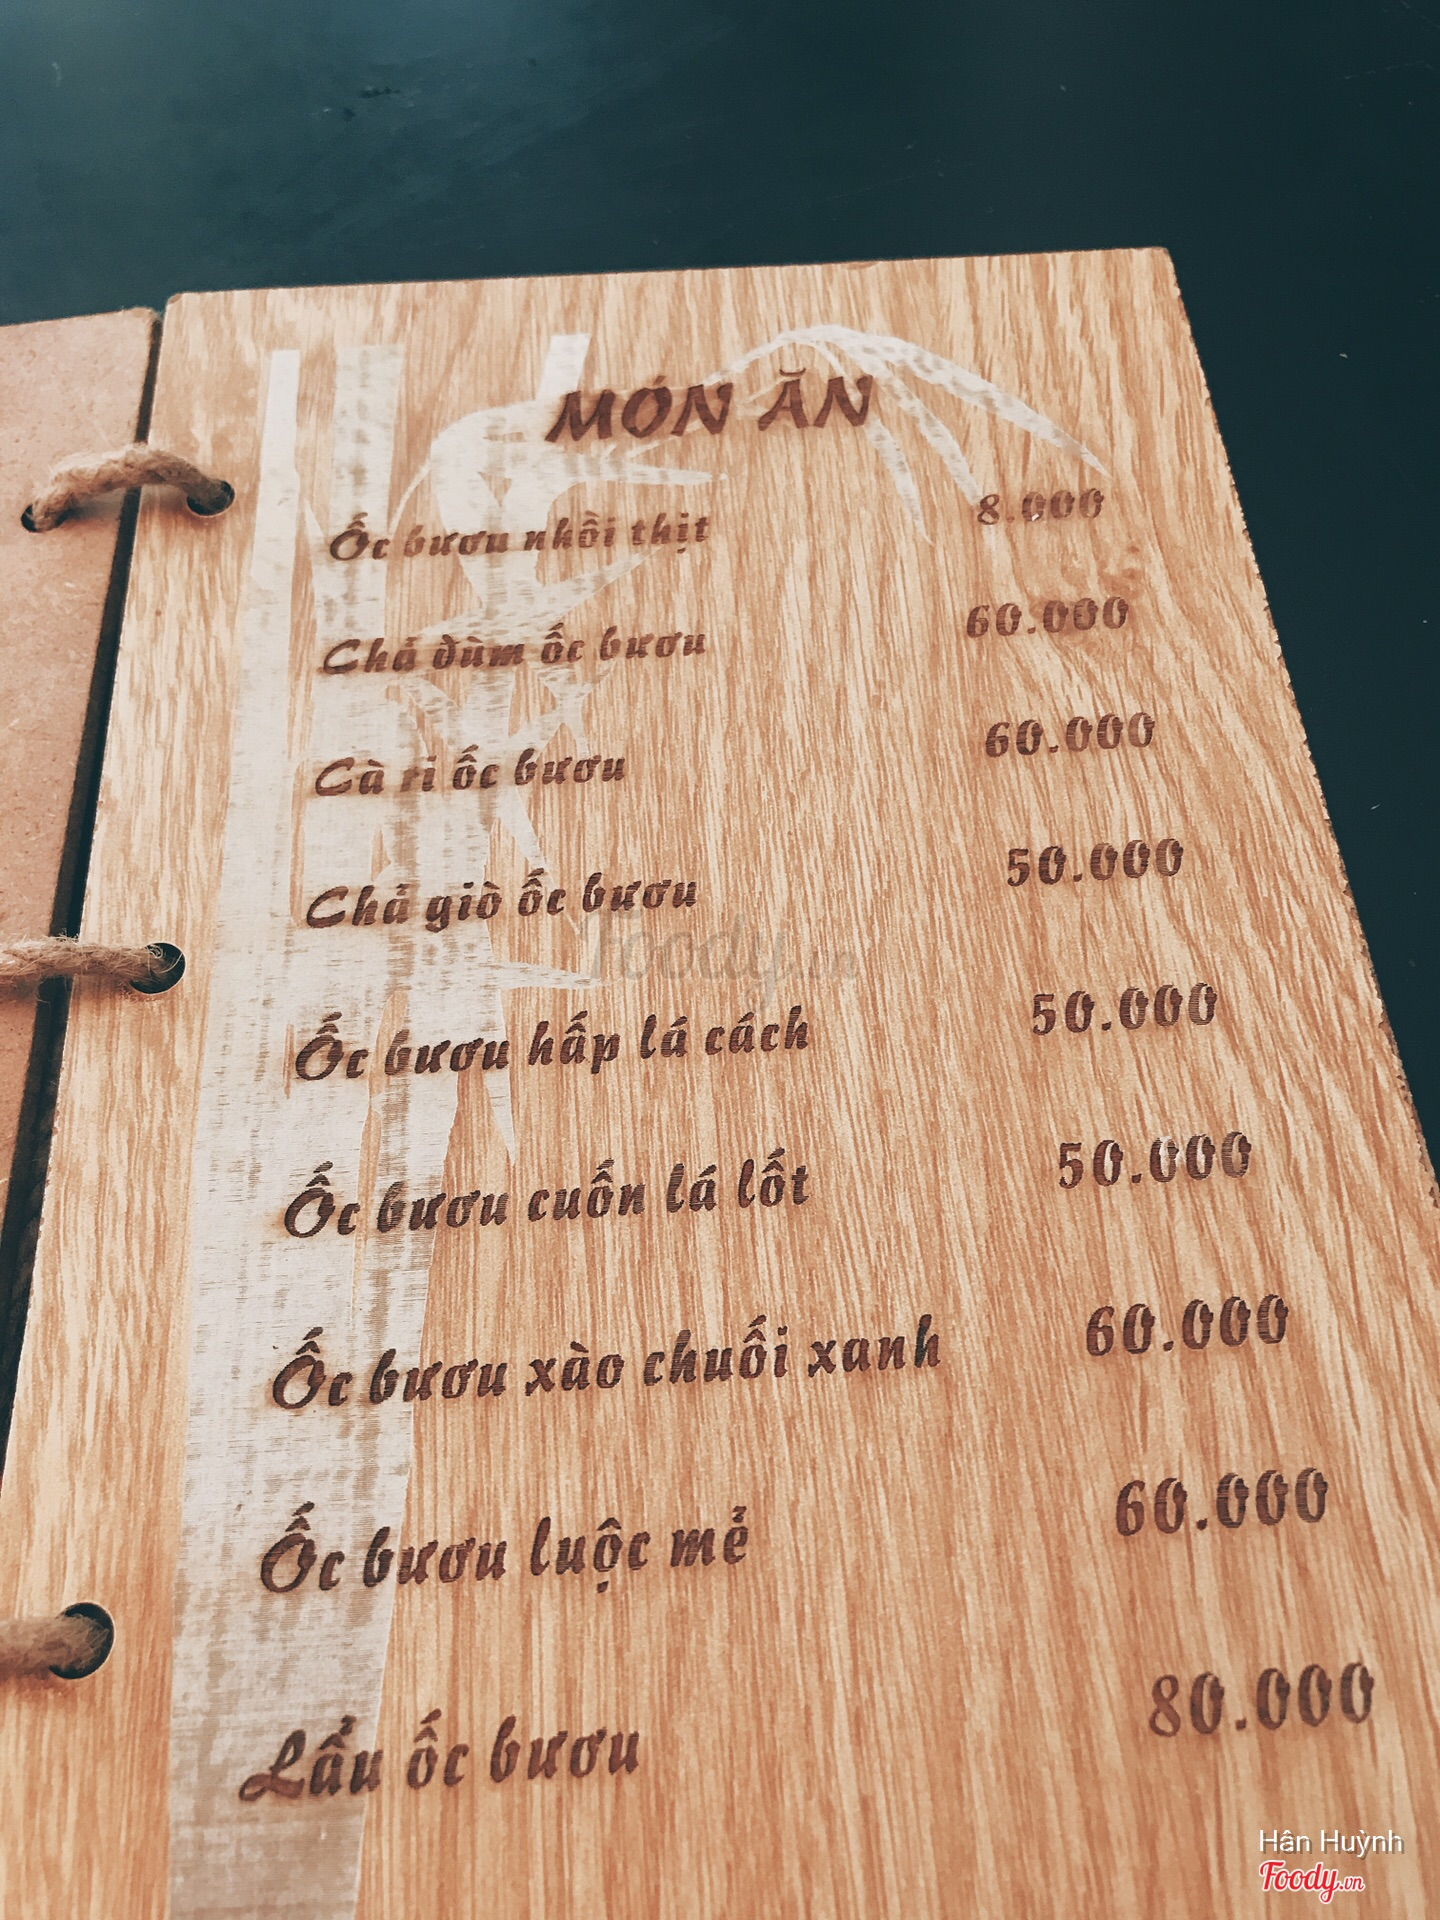 MÓN ĂN
Ốc bươu nhồi thịt 8.000
Chả đùm ốc bươu 60.000
Cà ri ốc bươu 60.000
Chả giò ốc bươu 50.000
Ốc bươu hấp lá cách 50.000
Ốc bươu cuốn lá lốt 50.000
Ốc bươu xào chuối xanh 60.000
Ốc bươu luộc mẻ 60.000
Lẩu ốc bươu 80.000
Foody.vn
Hân Huỳnh
Foody.vn